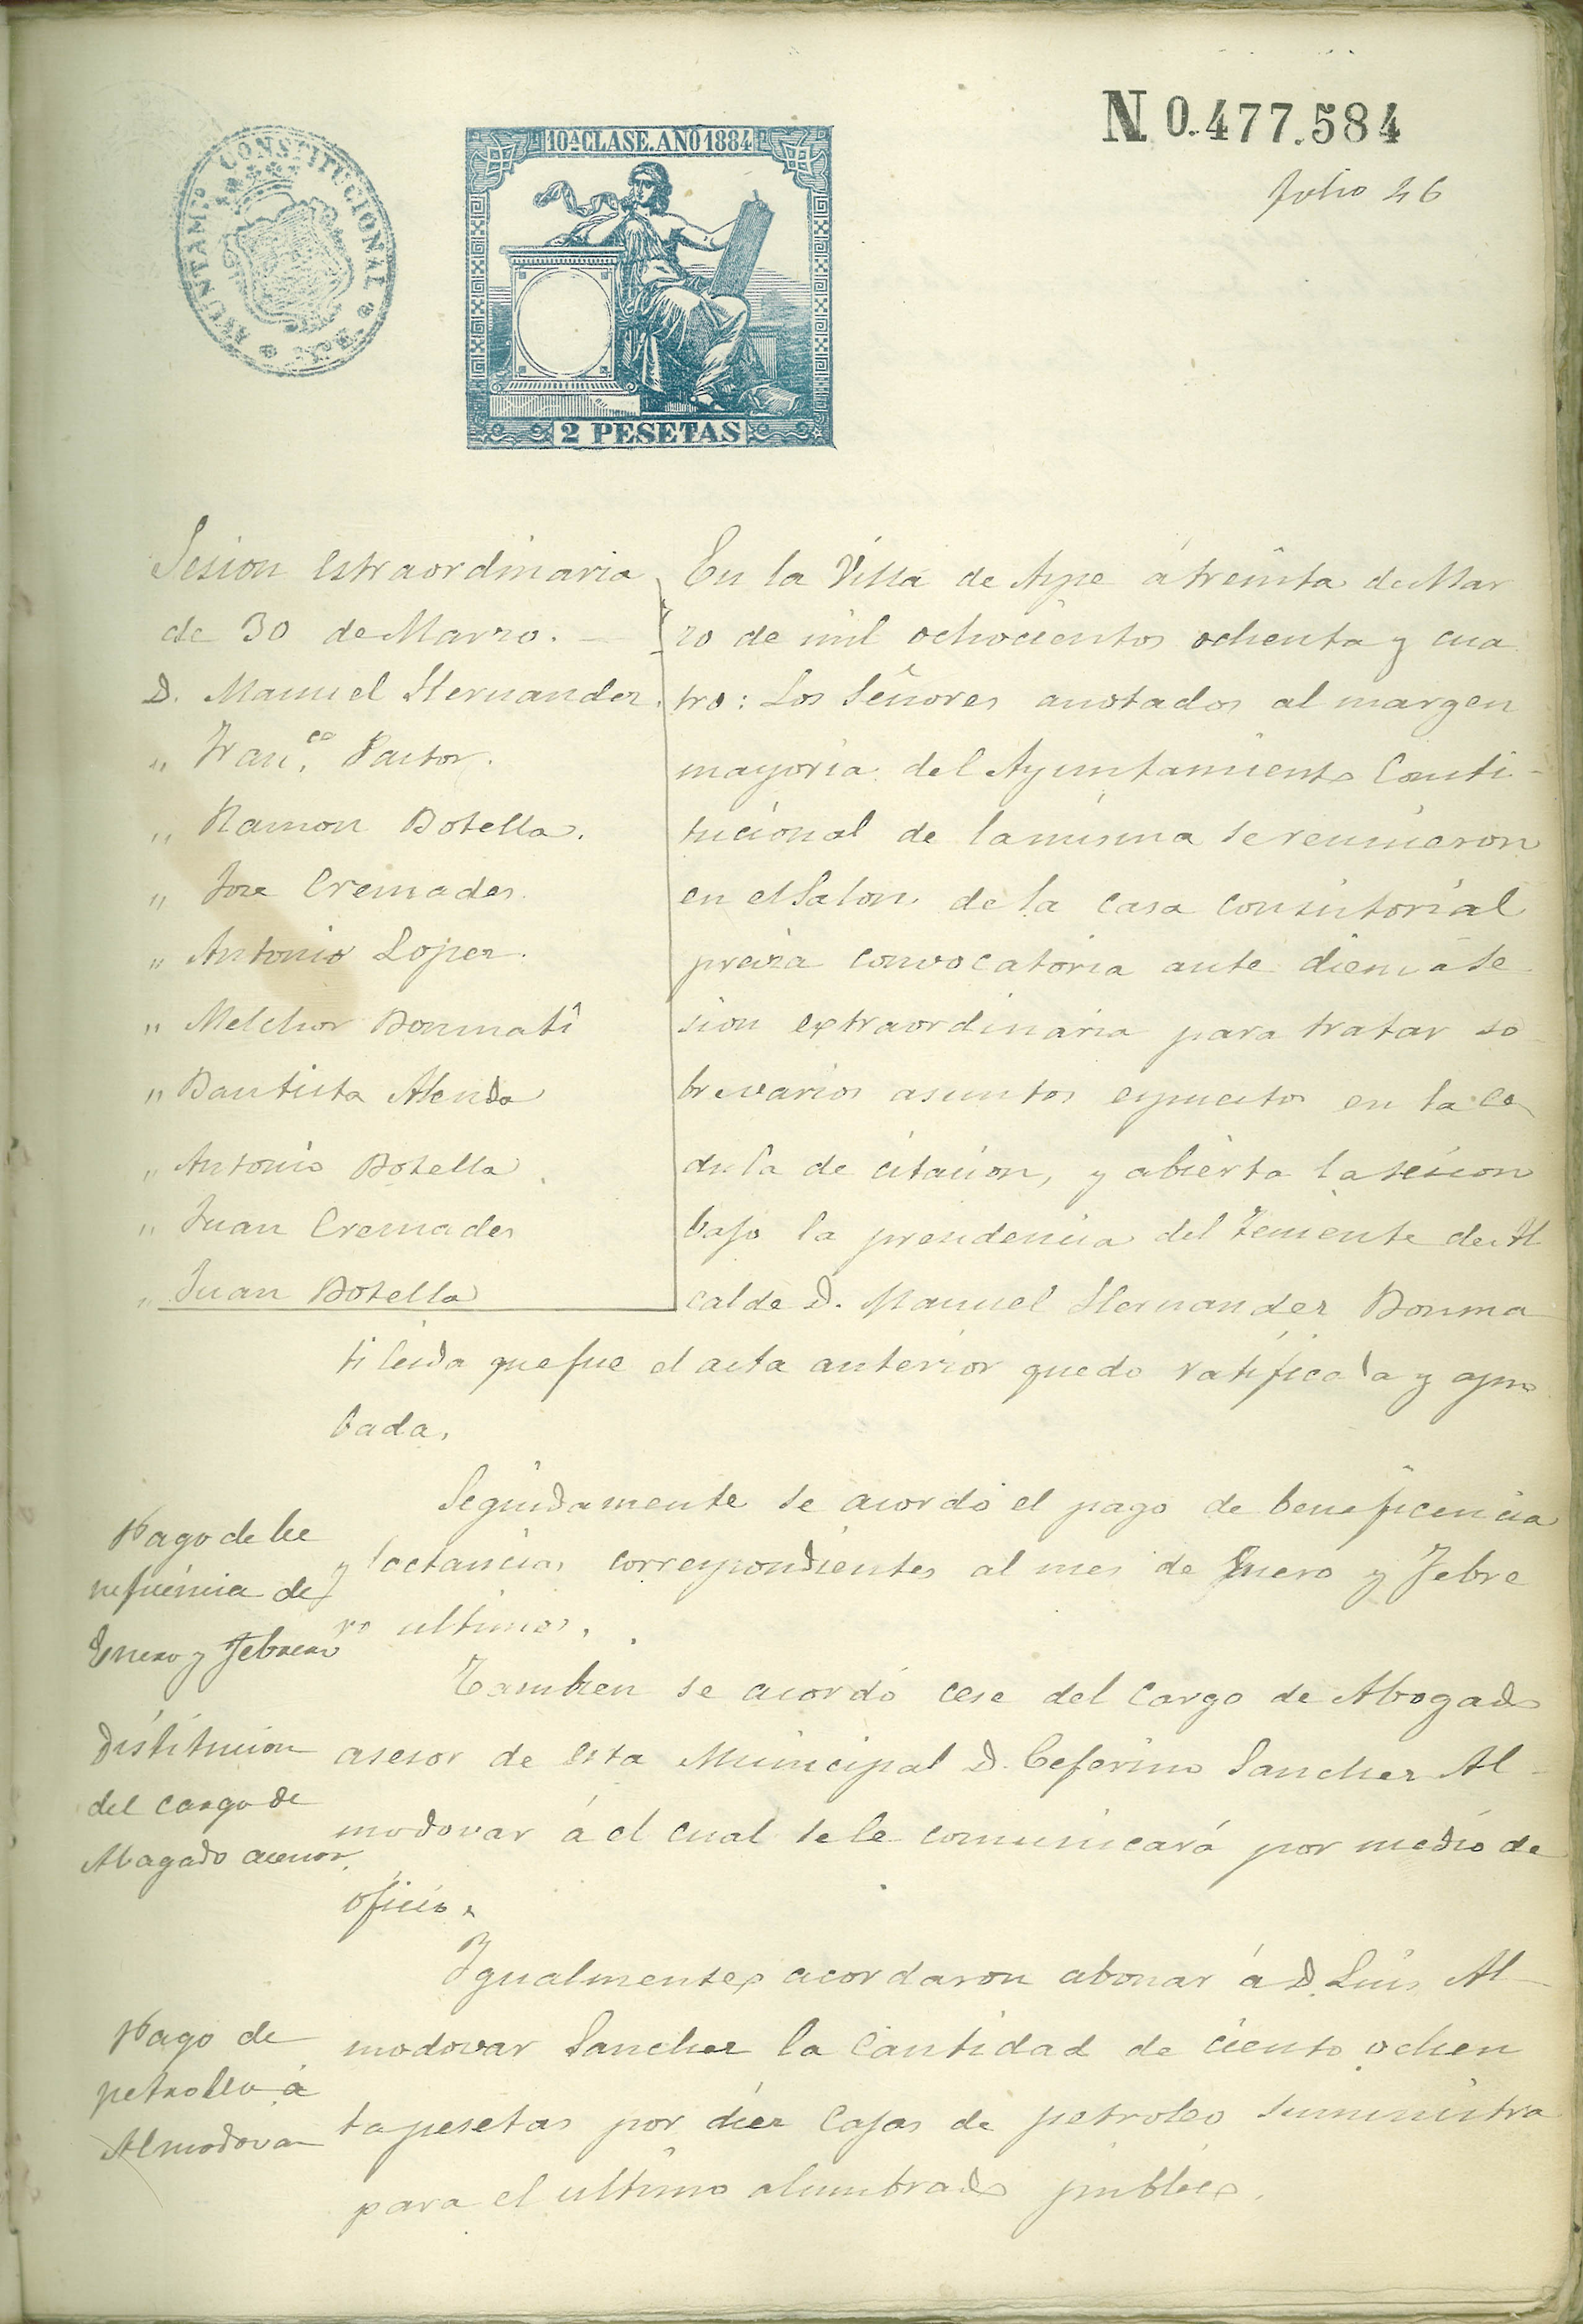 AYUNTAMTO CONSTITUCIONAL
10ª CLASE. AÑO 1884
2 PESETAS
N 0.477.584
Folio 46
Sesion estraordinaria
de 30 de Marzo. —
D. Manuel Hernandez.
„ Fran.co Pastor.
„ Ramon Botella.
„ Jose Cremades.
„ Antonio Lopez.
„ Melchor Bonmatí
„ Bautista Alenda
„ Antonio Botella
„ Juan Cremades
„ Juan Botella
En la Villa de Aspe á treinta de Mar
zo de mil ochocientos ochenta y cua
tro: Los Señores anotados al margen
mayoria del Ayuntamiento Consti-
tucional de la misma se reunieron
en el Salon de la casa consistorial
previa convocatoria ante diem á se
sion extraordinaria para tratar so
bre varios asuntos espuestos en la ce
dula de citacion, y abierta la sesion
bajo la presidencia del Teniente de Al
calde D. Manuel Hernandez Bonma
ti leida que fue el acta anterior quedo ratificada y apro
bada.
Seguidamente se acordó el pago de beneficencia
y lactancias correspondientes al mes de Enero y Febre
ro ultimos.
Pago de be
neficencia de
Enero y Febrero
Tambien se acordó cese del cargo de Abogado
asesor de esta Municipal D. Ceferino Sanchez Al-
modovar á el cual se le comunicará por medio de
oficio.
Distitucion
del cargo de
Abagado acesor.
Igualmente acordaron abonar á D. Luis Al-
modovar Sanchez la cantidad de ciento ochen
ta pesetas por diez cajas de petroleo suministra
para el ultimo alumbrado publico.
Pago de
petroleo á
Almodovar